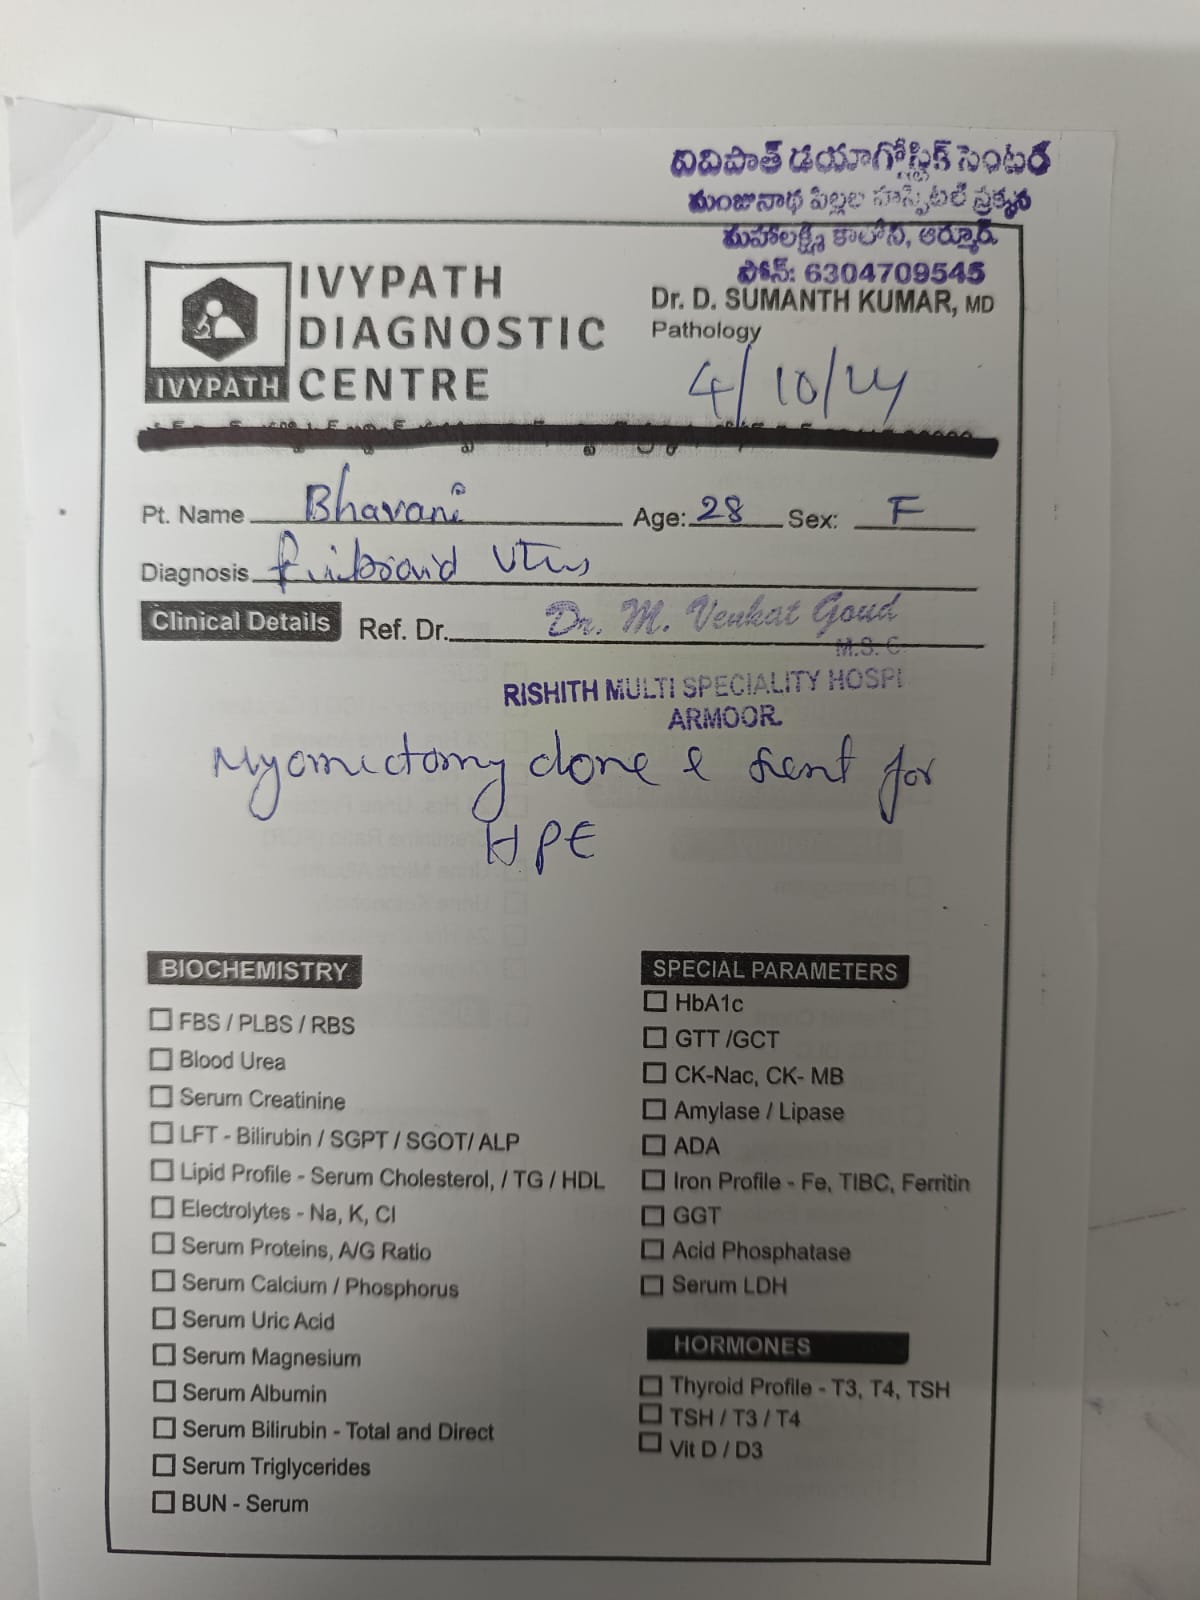 వివిపాత్ డయాగ్నోస్టిక్ సెంటర్
మంజునాథ పిల్లల హాస్పిటల్ ప్రక్కన
మహాలక్ష్మి కాలోని, ఆర్మూర్.
ఫోన్: 6304709545
IVYPATH
IVYPATH
DIAGNOSTIC
CENTRE
Dr. D. SUMANTH KUMAR, MD
Pathology
4/10/24
Pt. Name Bhavani Age: 28 Sex: F
Diagnosis fibroid Utus
Clinical Details Ref. Dr. Dr. M. Venkat Goud
M.S. G
RISHITH MULTI SPECIALITY HOSPI
ARMOOR.
Myomectomy done & sent for
HPE
BIOCHEMISTRY
FBS / PLBS / RBS
Blood Urea
Serum Creatinine
LFT - Bilirubin / SGPT / SGOT/ ALP
Lipid Profile - Serum Cholesterol, / TG / HDL
Electrolytes - Na, K, Cl
Serum Proteins, A/G Ratio
Serum Calcium / Phosphorus
Serum Uric Acid
Serum Magnesium
Serum Albumin
Serum Bilirubin - Total and Direct
Serum Triglycerides
BUN - Serum
SPECIAL PARAMETERS
HbA1c
GTT /GCT
CK-Nac, CK- MB
Amylase / Lipase
ADA
Iron Profile - Fe, TIBC, Ferritin
GGT
Acid Phosphatase
Serum LDH
HORMONES
Thyroid Profile - T3, T4, TSH
TSH / T3 / T4
Vit D / D3